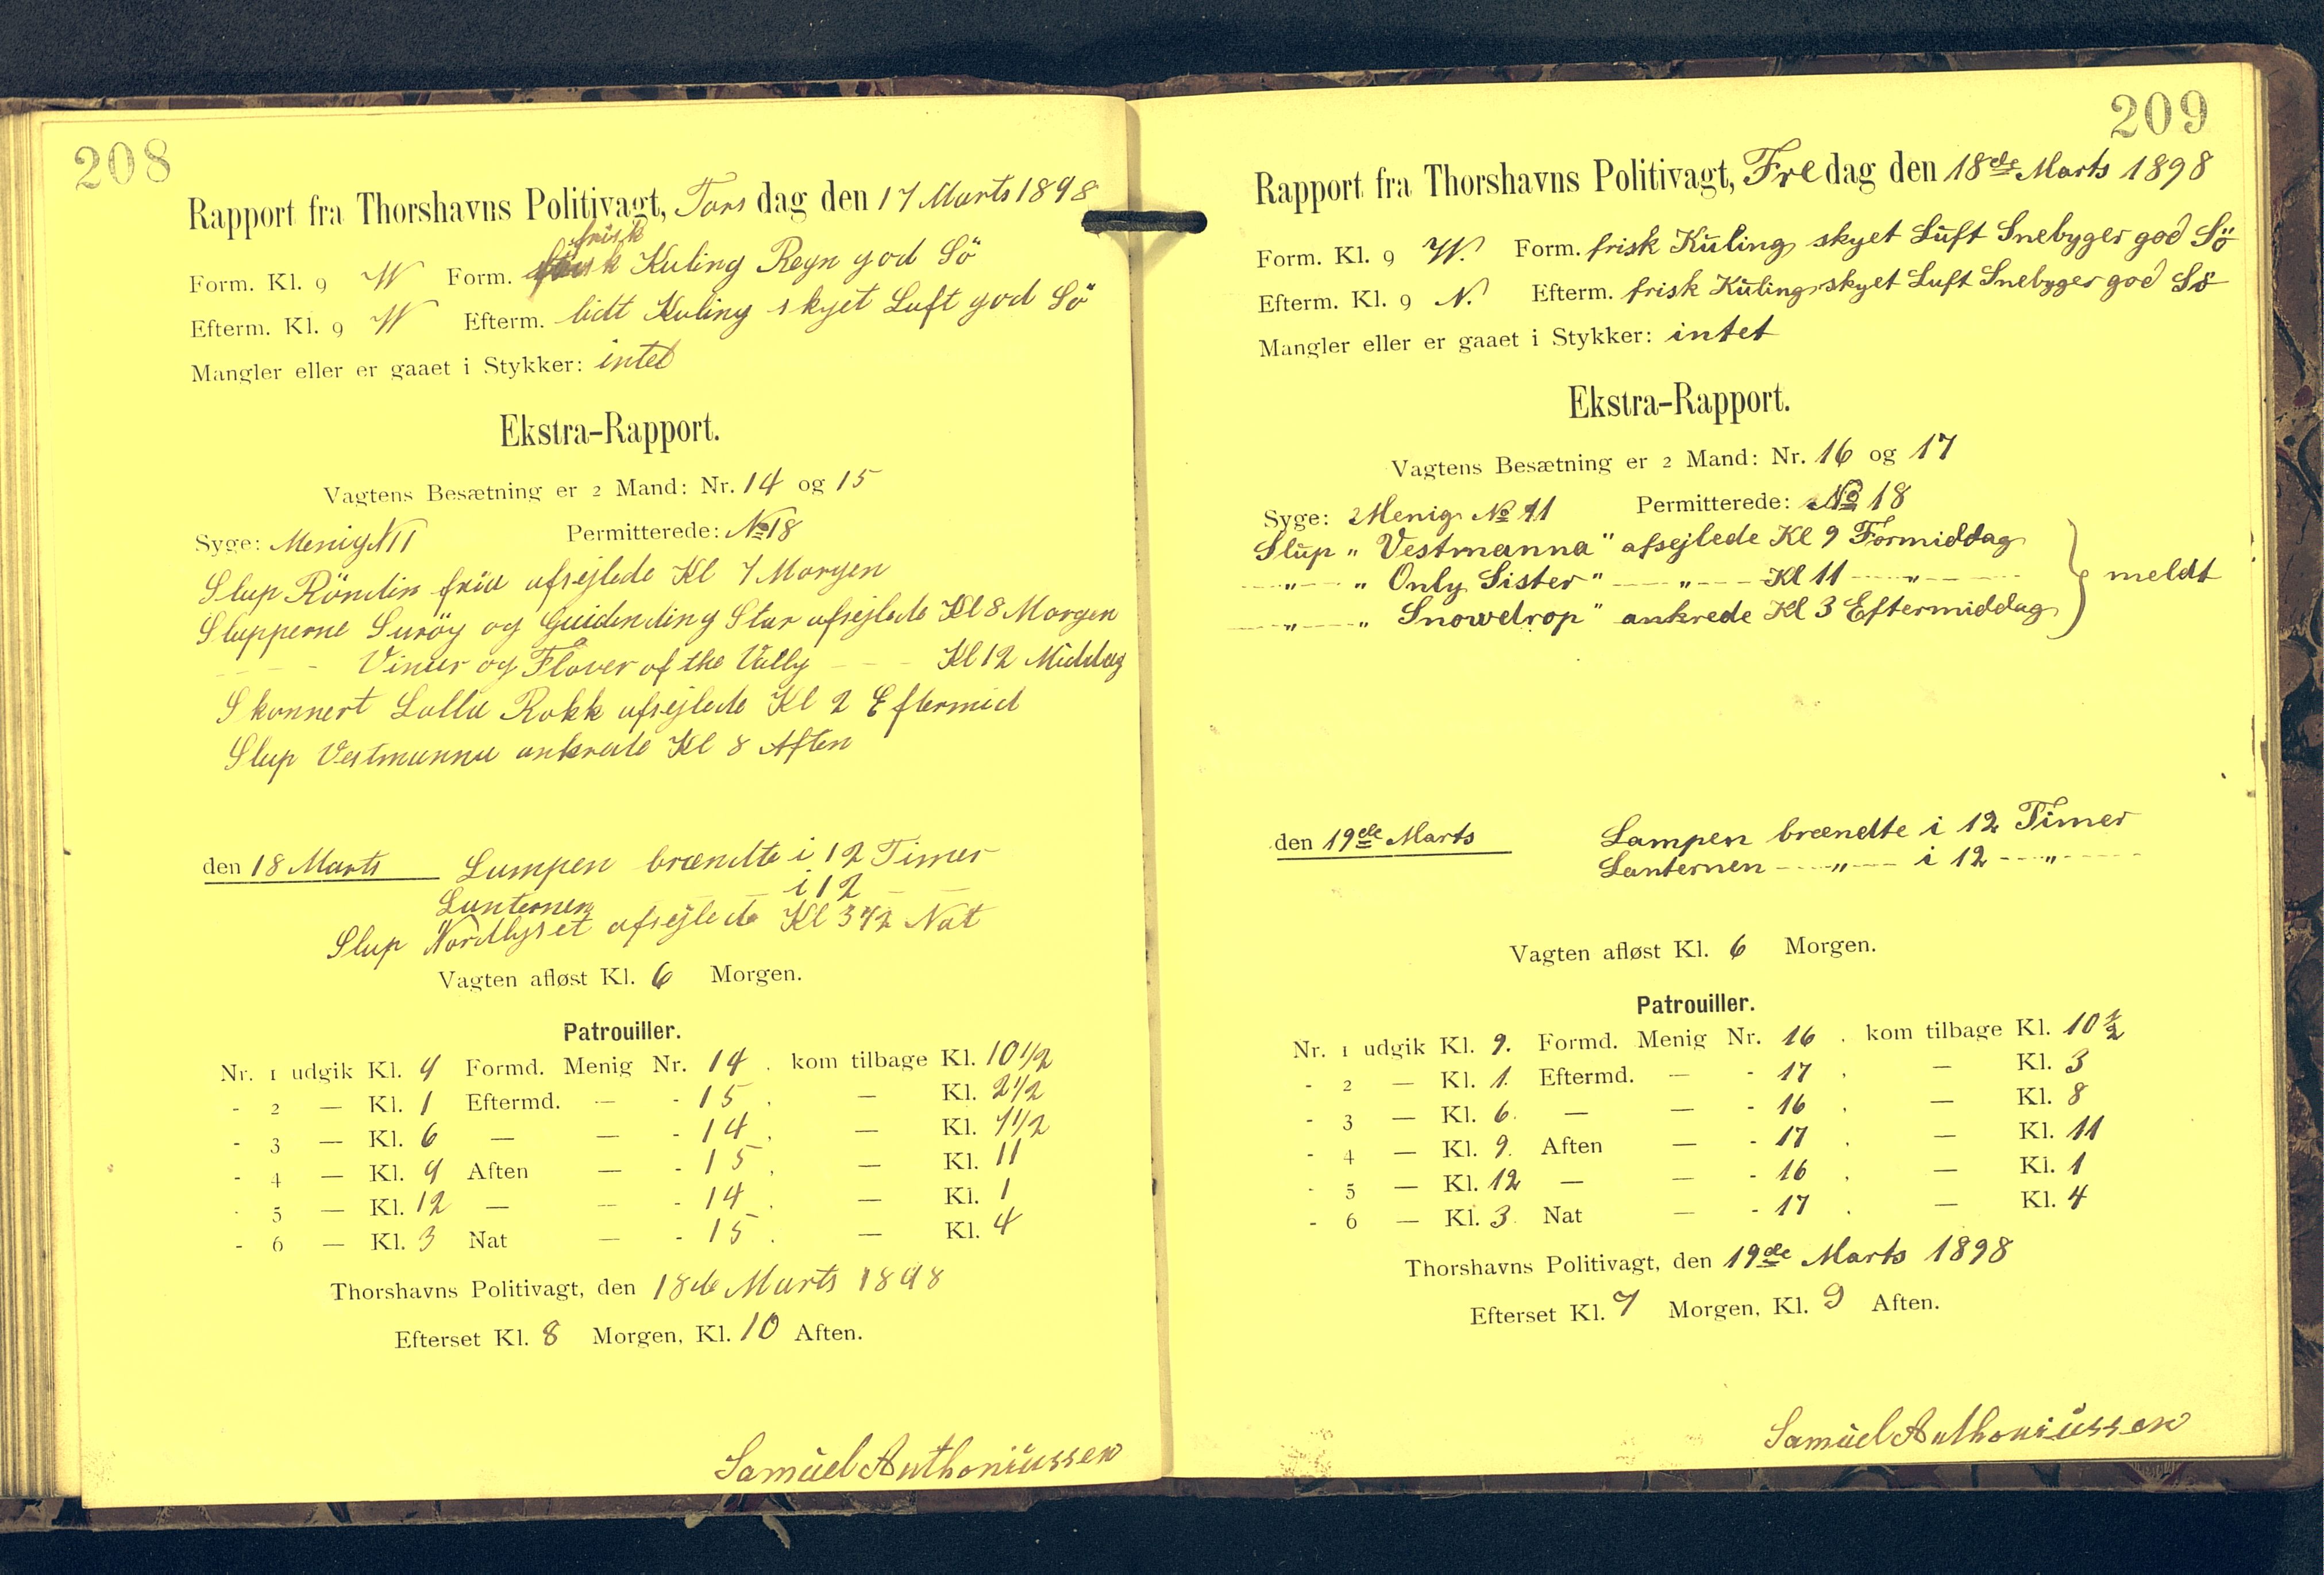 208
Rapport fra Thorshavns Politivagt, Torsdag den 17 Marts 1898
frisk
Form. Kl. 9 W Form. Kuling Regn god Sö
Efterm. Kl. 9 W Efterm. lidt Kuling skyet Luft god Sö
Mangler eller er gaaet i Stykker: intet
Ekstra-Rapport.
Vagtens Besætning er 2 Mand: Nr. 14 og 15
Syge: Menig N 11 Permitterede: № 18
Slup Röndin fríu afsejlede Kl 7 Morgen
Slupperne Suröy og Guidending Star afsejlede Kl 8 Morgen
- - - Vinur og Flover of the Vally - - - Kl 12 Middag
Skonnert Lalla Rokk afsejlede Kl 2 Eftermid
Slup Vestmanna ankrede Kl 8 Aften
den 18 Marts Lampen brændte i 12 Timer
Lanternen - - i 12 - -
Slup Nordlyset afsejlede Kl 3 1/2 Nat
Vagten afløst Kl. 6 Morgen.
Patrouiller.
Nr. 1 udgik Kl. 9 Formd. Menig Nr. 14 . kom tilbage Kl. 10 1/2
- 2 — Kl. 1 Eftermd. — - 15 . — Kl. 2 1/2
- 3 — Kl. 6 — — - 14 . — Kl. 7 1/2
- 4 — Kl. 9 Aften — - 15 . — Kl. 11
- 5 — Kl. 12 — — - 14 . — Kl. 1
- 6 — Kl. 3 Nat — - 15 . — Kl. 4
Thorshavns Politivagt, den 18de Marts 1898
Efterset Kl. 8 Morgen, Kl. 10 Aften.
Samuel Anthoniussen
209
Rapport fra Thorshavns Politivagt, Fredag den 18de Marts 1898
Form. Kl. 9 W. Form. frisk Kuling, skyet Luft Snebyger god Sö
Efterm. Kl. 9 N. Efterm. frisk Kuling, skyet Luft Snebyger god Sö
Mangler eller er gaaet i Stykker: intet
Ekstra-Rapport.
Vagtens Besætning er 2 Mand: Nr. 16 og 17
Syge: Menig № 11 Permitterede: № 18
Slup „Vestmanna" afsejlede Kl 9 Formiddag
—„— „Only Sister" —„— Kl 11 —„—
—„— „Snowdrop" ankrede Kl 3 Eftermiddag } meldt
den 19de Marts Lampen brændte i 12 Timer
Lanternen —„— i 12 —„—
Vagten afløst Kl. 6 Morgen.
Patrouiller.
Nr. 1 udgik Kl. 9. Formd. Menig Nr. 16 . kom tilbage Kl. 10 1/2
- 2 — Kl. 1. Eftermd. — - 17 . — Kl. 3
- 3 — Kl. 6. — — - 16 . — Kl. 8
- 4 — Kl. 9. Aften — - 17 . — Kl. 11
- 5 — Kl. 12 — — - 16 . — Kl. 1
- 6 — Kl. 3. Nat — - 17 . — Kl. 4
Thorshavns Politivagt, den 19de Marts 1898
Efterset Kl. 7 Morgen, Kl. 9 Aften.
Samuel Anthoniussen